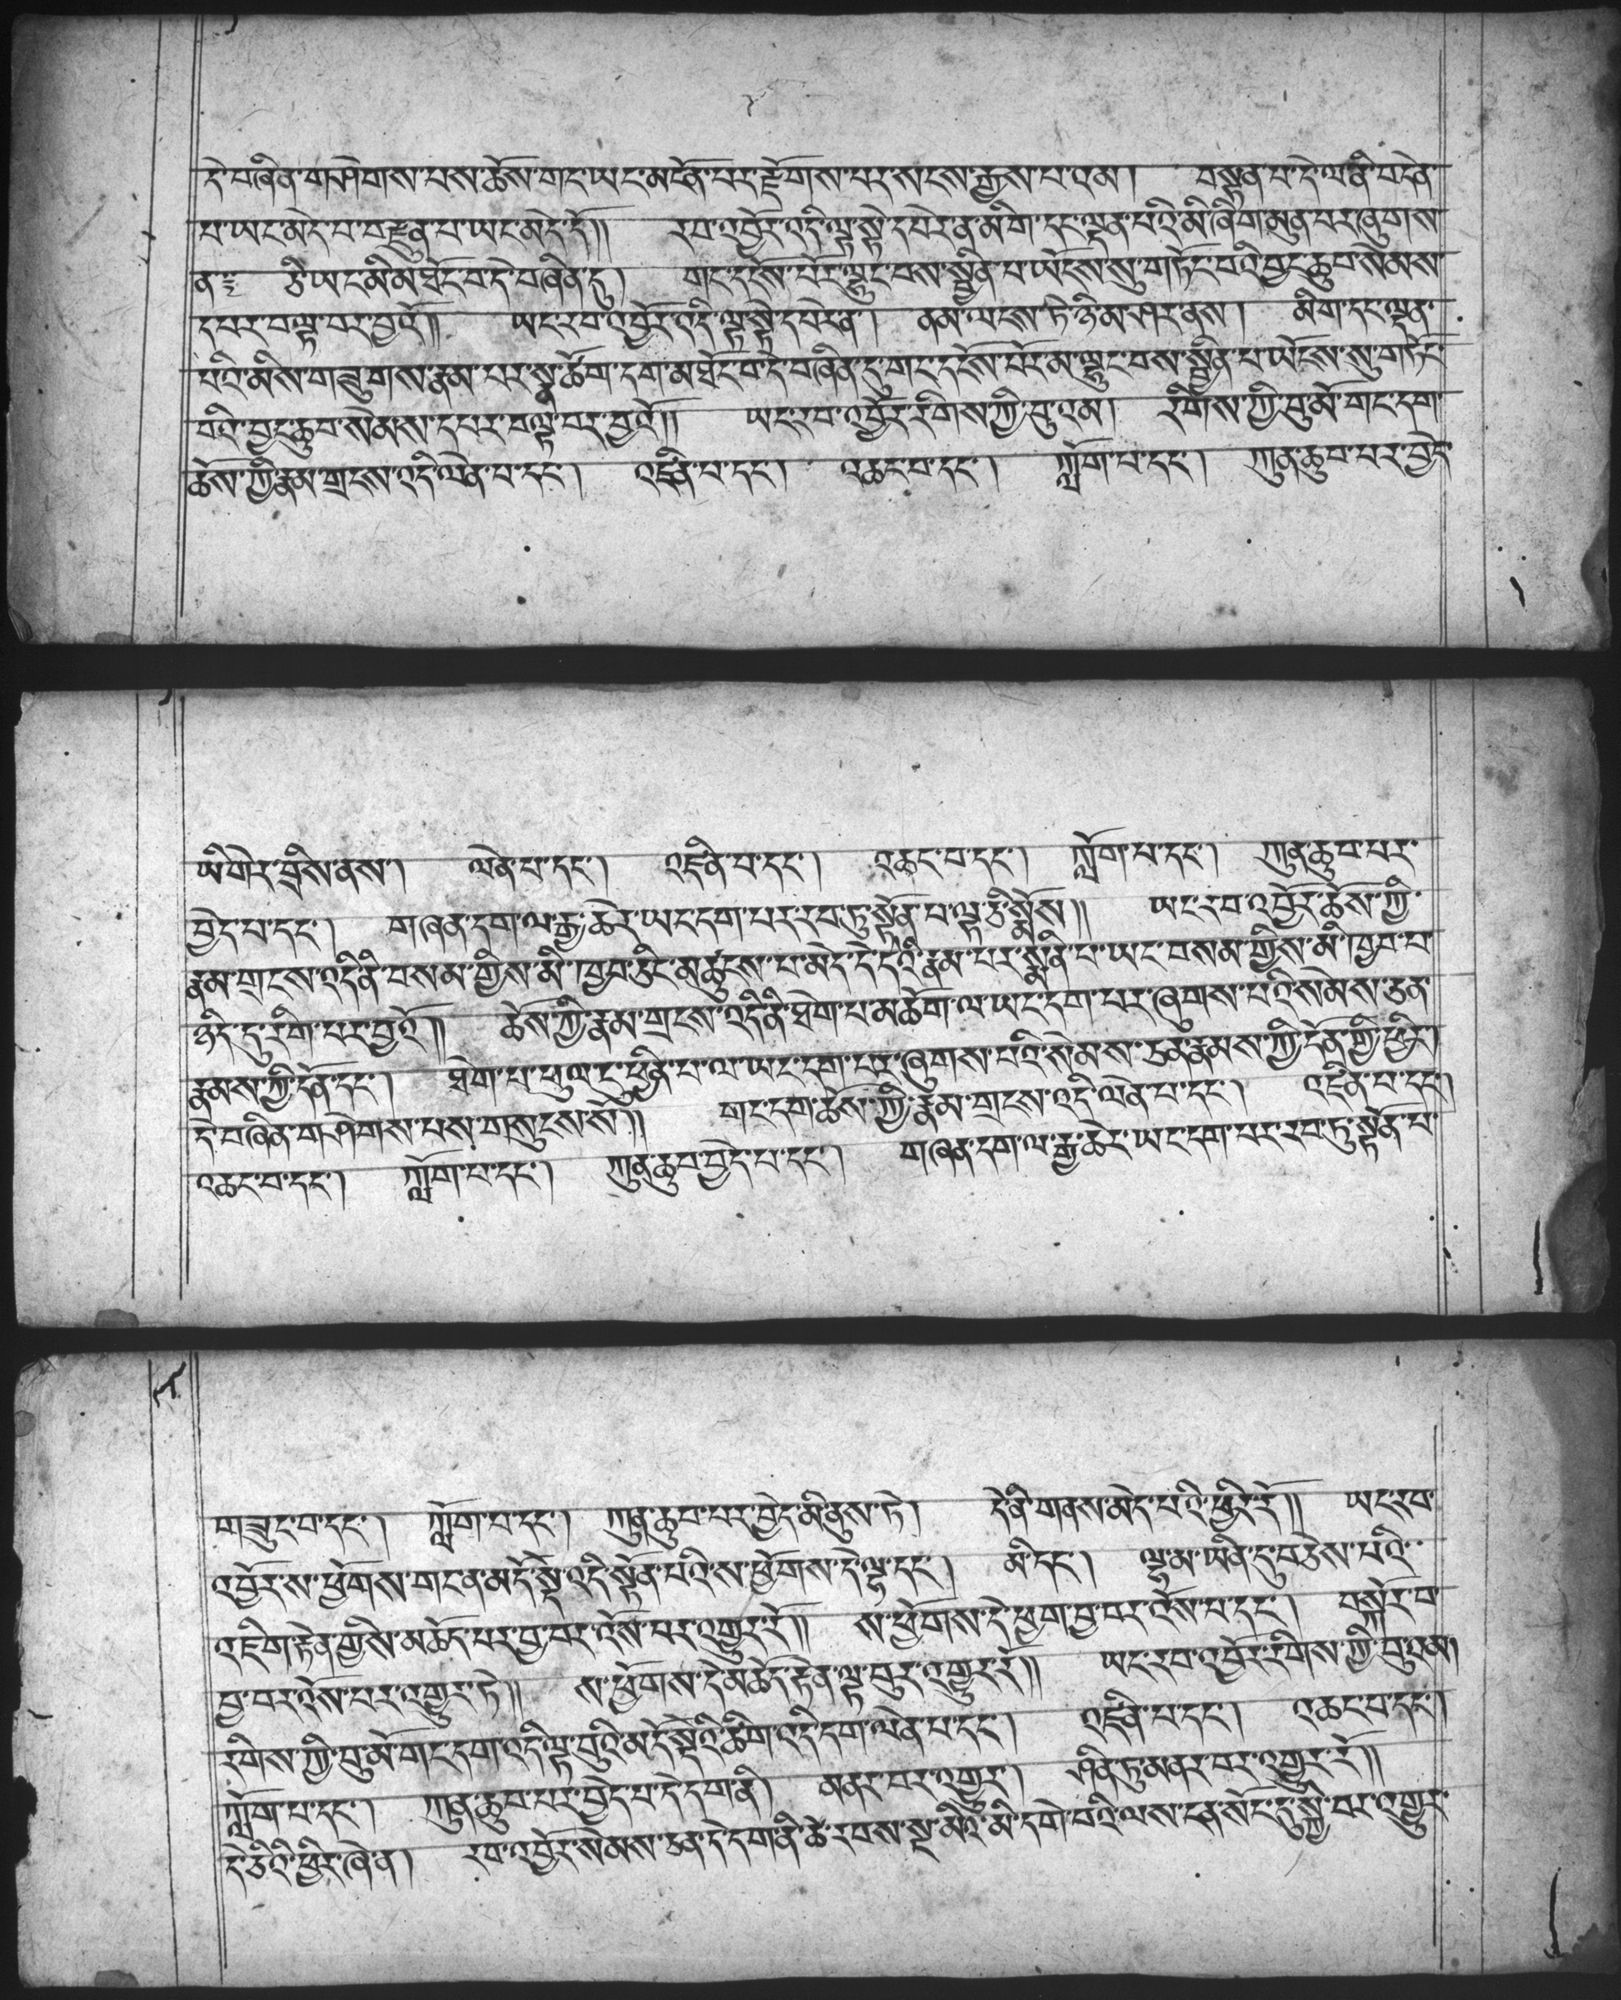 དེ་བཞིན་གཤེགས་པས་ཆོས་གང་ཡང་མངོན་པར་རྫོགས་པར་སངས་རྒྱས་པ་འམ། བསྟན་པ་དེ་ལ་ནི་བདེན་
པ་ཡང་མེད་པ་བརྫུན་པ་ཡང་མེད་དོ།། རབ་འབྱོར་འདི་ལྟ་སྟེ་དཔེར་ན་མིག་དང་ལྡན་པའི་མི་ཞིག་མུན་པར་ཞུགས་
ན་ ཅི་ཡང་མི་མཐོང་བ་དེ་བཞིན་དུ། གང་དངོས་པོར་ལྷུང་བས་སྦྱིན་པ་ཡོངས་སུ་གཏོང་བའི་བྱང་ཆུབ་སེམས་
དཔར་བལྟ་བར་བྱའོ།། ཡང་རབ་འབྱོར་འདི་ལྟ་སྟེ་དཔེར་ན། ནམ་ལངས་ཏེ་ཉི་མ་ཤར་ནས། མིག་དང་ལྡན་
པའི་མིས་གཟུགས་རྣམ་པར་སྣ་ཚོག་དག་མཐོང་བ་དེ་བཞིན་དུ་གང་དངོས་པོར་མ་ལྷུང་བས་སྦྱིན་པ་ཡོངས་སུ་གཏོང་
བའི་བྱང་ཆུབ་སེམས་དཔར་བལྟ་བར་བྱའོ།། ཡང་རབ་འབྱོར་རིགས་ཀྱི་བུ་འམ། རིགས་ཀྱི་བུ་མོ་གང་དག་
ཆོས་ཀྱི་རྣམ་གྲངས་འདི་ལེན་པ་དང་། འཛིན་པ་དང་། འཆང་བ་དང་། ཀློག་པ་དང་། ཀུན་ཆུབ་པར་བྱེད་
ཡི་གེར་བྲིས་ནས། ལེན་པ་དང་། འཛིན་པ་དང་། འཆང་བ་དང་། ཀློག་པ་དང་། ཀུན་ཆུབ་པར་
བྱེད་པ་དང་། གཞན་དག་ལ་རྒྱ་ཆེར་ཡང་དག་པར་རབ་ཏུ་སྟོན་པ་ལྟ་ཅི་སྨོས།། ཡང་རབ་འབྱོར་ཆོས་ཀྱི་
རྣམ་གྲངས་འདི་ནི་བསམ་གྱིས་མི་ཁྱབ་ཅིང་མཚུངས་པ་མེད་དེ་དེའི་རྣམ་པར་སྨིན་པ་ཡང་བསམ་གྱིས་མི་ཁྱབ་པ་
ཉིད་དུ་རིག་པར་བྱའོ།། ཆོས་ཀྱི་རྣམ་གྲངས་འདི་ནི་ཐེག་པ་མཆོག་ལ་ཡང་དག་པར་ཞུགས་པའི་སེམས་ཅན་
རྣམས་ཀྱི་དོན་དང་། ཐེག་པ་ཕུལ་དུ་ཕྱིན་པ་ལ་ཡང་དག་པར་ཞུགས་པའི་སེམས་ཅན་རྣམས་ཀྱི་དོན་གྱི་ཕྱིར།
དེ་བཞིན་གཤེགས་པས་གསུངས་སོ།། གང་དག་ཆོས་ཀྱི་རྣམ་གྲངས་འདི་ལེན་པ་དང་། འཛིན་པ་དང་།
འཆང་བ་དང་། ཀློག་པ་དང་། ཀུན་ཆུབ་བྱེད་པ་དང་། གཞན་དག་ལ་རྒྱ་ཆེར་ཡང་དག་པར་རབ་ཏུ་སྟོན་པ་
གཟུང་བ་དང་། ཀློག་པ་དང་། ཀུན་ཆུབ་པར་བྱེད་མི་ནུས་ཏེ། དེ་ནི་གནས་མེད་པའི་ཕྱིར་རོ།། ཡང་རབ་
འབྱོར་ས་ཕྱོགས་གང་ན་མདོ་སྡེ་འདི་སྟོན་པའི་ས་ཕྱོགས་དེ་ལྷ་དང་། མི་དང་། ལྷ་མ་ཡིན་དུ་བཅས་པའི་
འཇིག་རྟེན་གྱིས་མཆོད་པར་བྱ་བར་འོས་པར་འགྱུར་རོ།། ས་ཕྱོགས་དེ་ཕྱག་བྱ་བར་འོས་པ་དང་། བསྐོར་བ་
བྱ་བར་འོས་པར་འགྱུར་ཏེ།། ས་ཕྱོགས་དེ་མཆོད་རྟེན་ལྟ་བུར་འགྱུར་རོ།། ཡང་རབ་འབྱོར་རིགས་ཀྱི་བུ་འམ།
རིགས་ཀྱི་བུ་མོ་གང་དག་འདི་ལྟ་བུའི་མདོ་སྡེའི་ཚིག་འདི་དག་ལེན་པ་དང་། འཛིན་པ་དང་། འཆང་བ་དང་།
ཀློག་པ་དང་། ཀུན་ཆུབ་པར་བྱེད་པ་དེ་དག་ནི། མནར་བར་འགྱུར། ཤིན་ཏུ་མནར་བར་འགྱུར་རོ།།
དེ་ཅིའི་ཕྱིར་ཞེ་ན། རབ་འབྱོར་སེམས་ཅན་དེ་དག་ནི་ཚེ་རབས་སྔ་མའི་མི་དགེ་བའི་ལས་ངན་སོང་དུ་སྐྱེ་བར་འགྱུར་